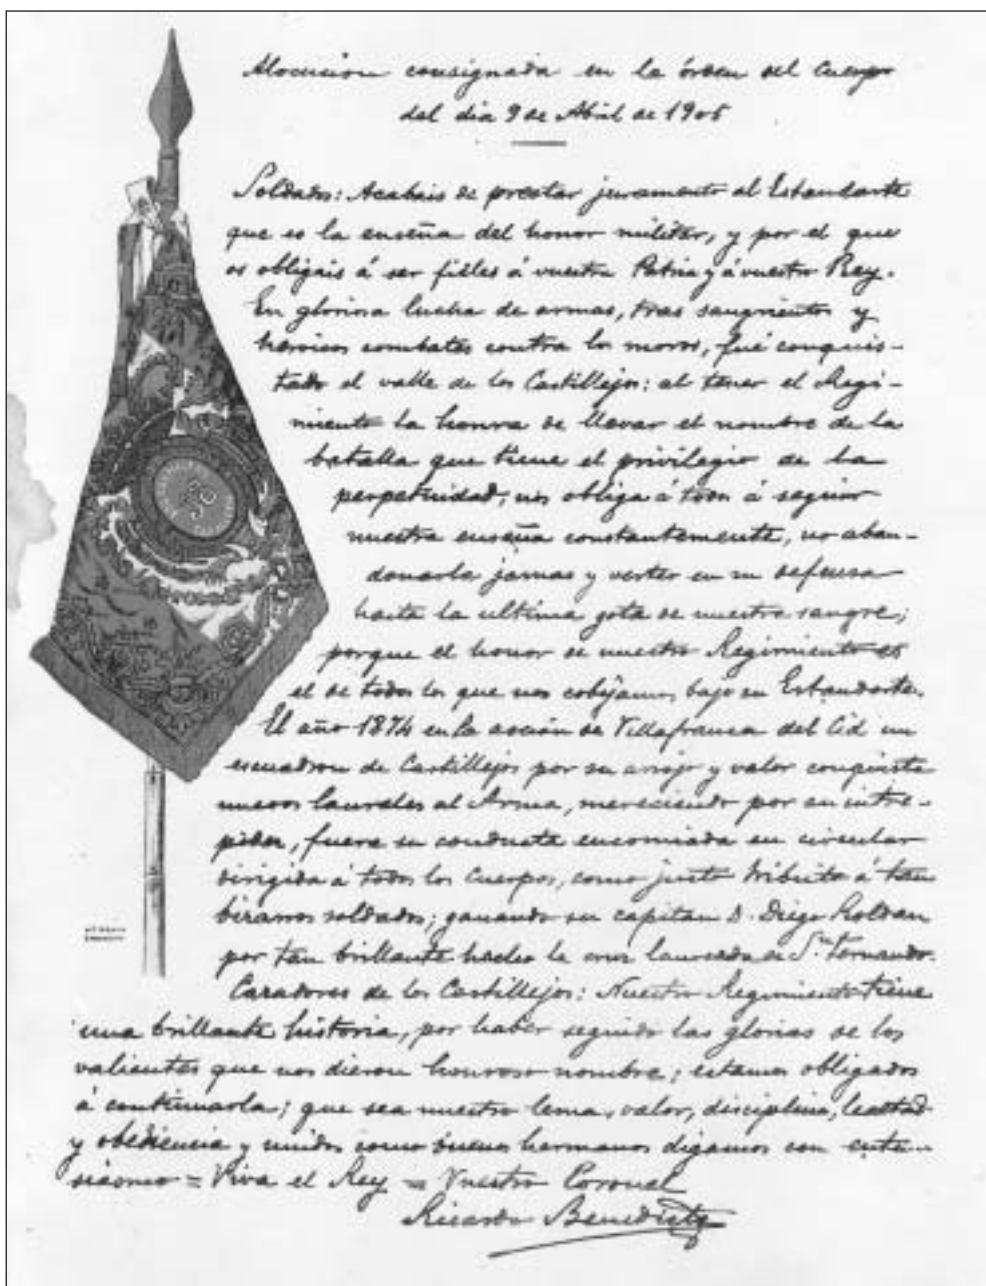 Alocucion consignada en la órden del Cuerpo
del dia 9 de Abril de 1905
Soldados: Acabais de prestar juramento al Estandarte
que es la enseña del honor militar, y por el que
os obligais á ser fieles á vuestra Patria y á vuestro Rey.
En gloriosa lucha de armas, tras sangrientos y
heroicos combates contra los moros, fué conquis-
tado el valle de los Castillejos; al tener el Regi-
miento la honra de llevar el nombre de la
batalla que tiene el privilegio de la
perpetuidad, nos obliga á todos á seguir
nuestra enseña constantemente, no aban-
donarla jamas y verter en su defensa
hasta la ultima gota de nuestra sangre;
porque el honor de nuestro Regimiento es
el de todos los que nos cobijamos bajo su Estandarte.
El año 1874 en la accion de Villafranca del Cid un
escuadron de Castillejos por su arrojo y valor conquista
nuevos laureles al Arma, mereciendo por su intre-
pidez, fuera su conducta encomiada en circular
dirigida á todos los Cuerpos, como justo tributo á tan
bizarros soldados; ganando su capitan D. Diego Roldan
por tan brillante hecho la cruz laureada de Sn. Fernando.
Cazadores de los Castillejos: Nuestro Regimiento tiene
una brillante historia, por haber seguido las glorias de los
valientes que nos dieron honroso nombre; estamos obligados
á continuarla; que sea nuestro lema, valor, disciplina, lealtad
y obediencia y unidos como buenos hermanos digamos con entu-
siasmo = Viva el Rey = Vuestro Coronel
Ricardo Benedicto